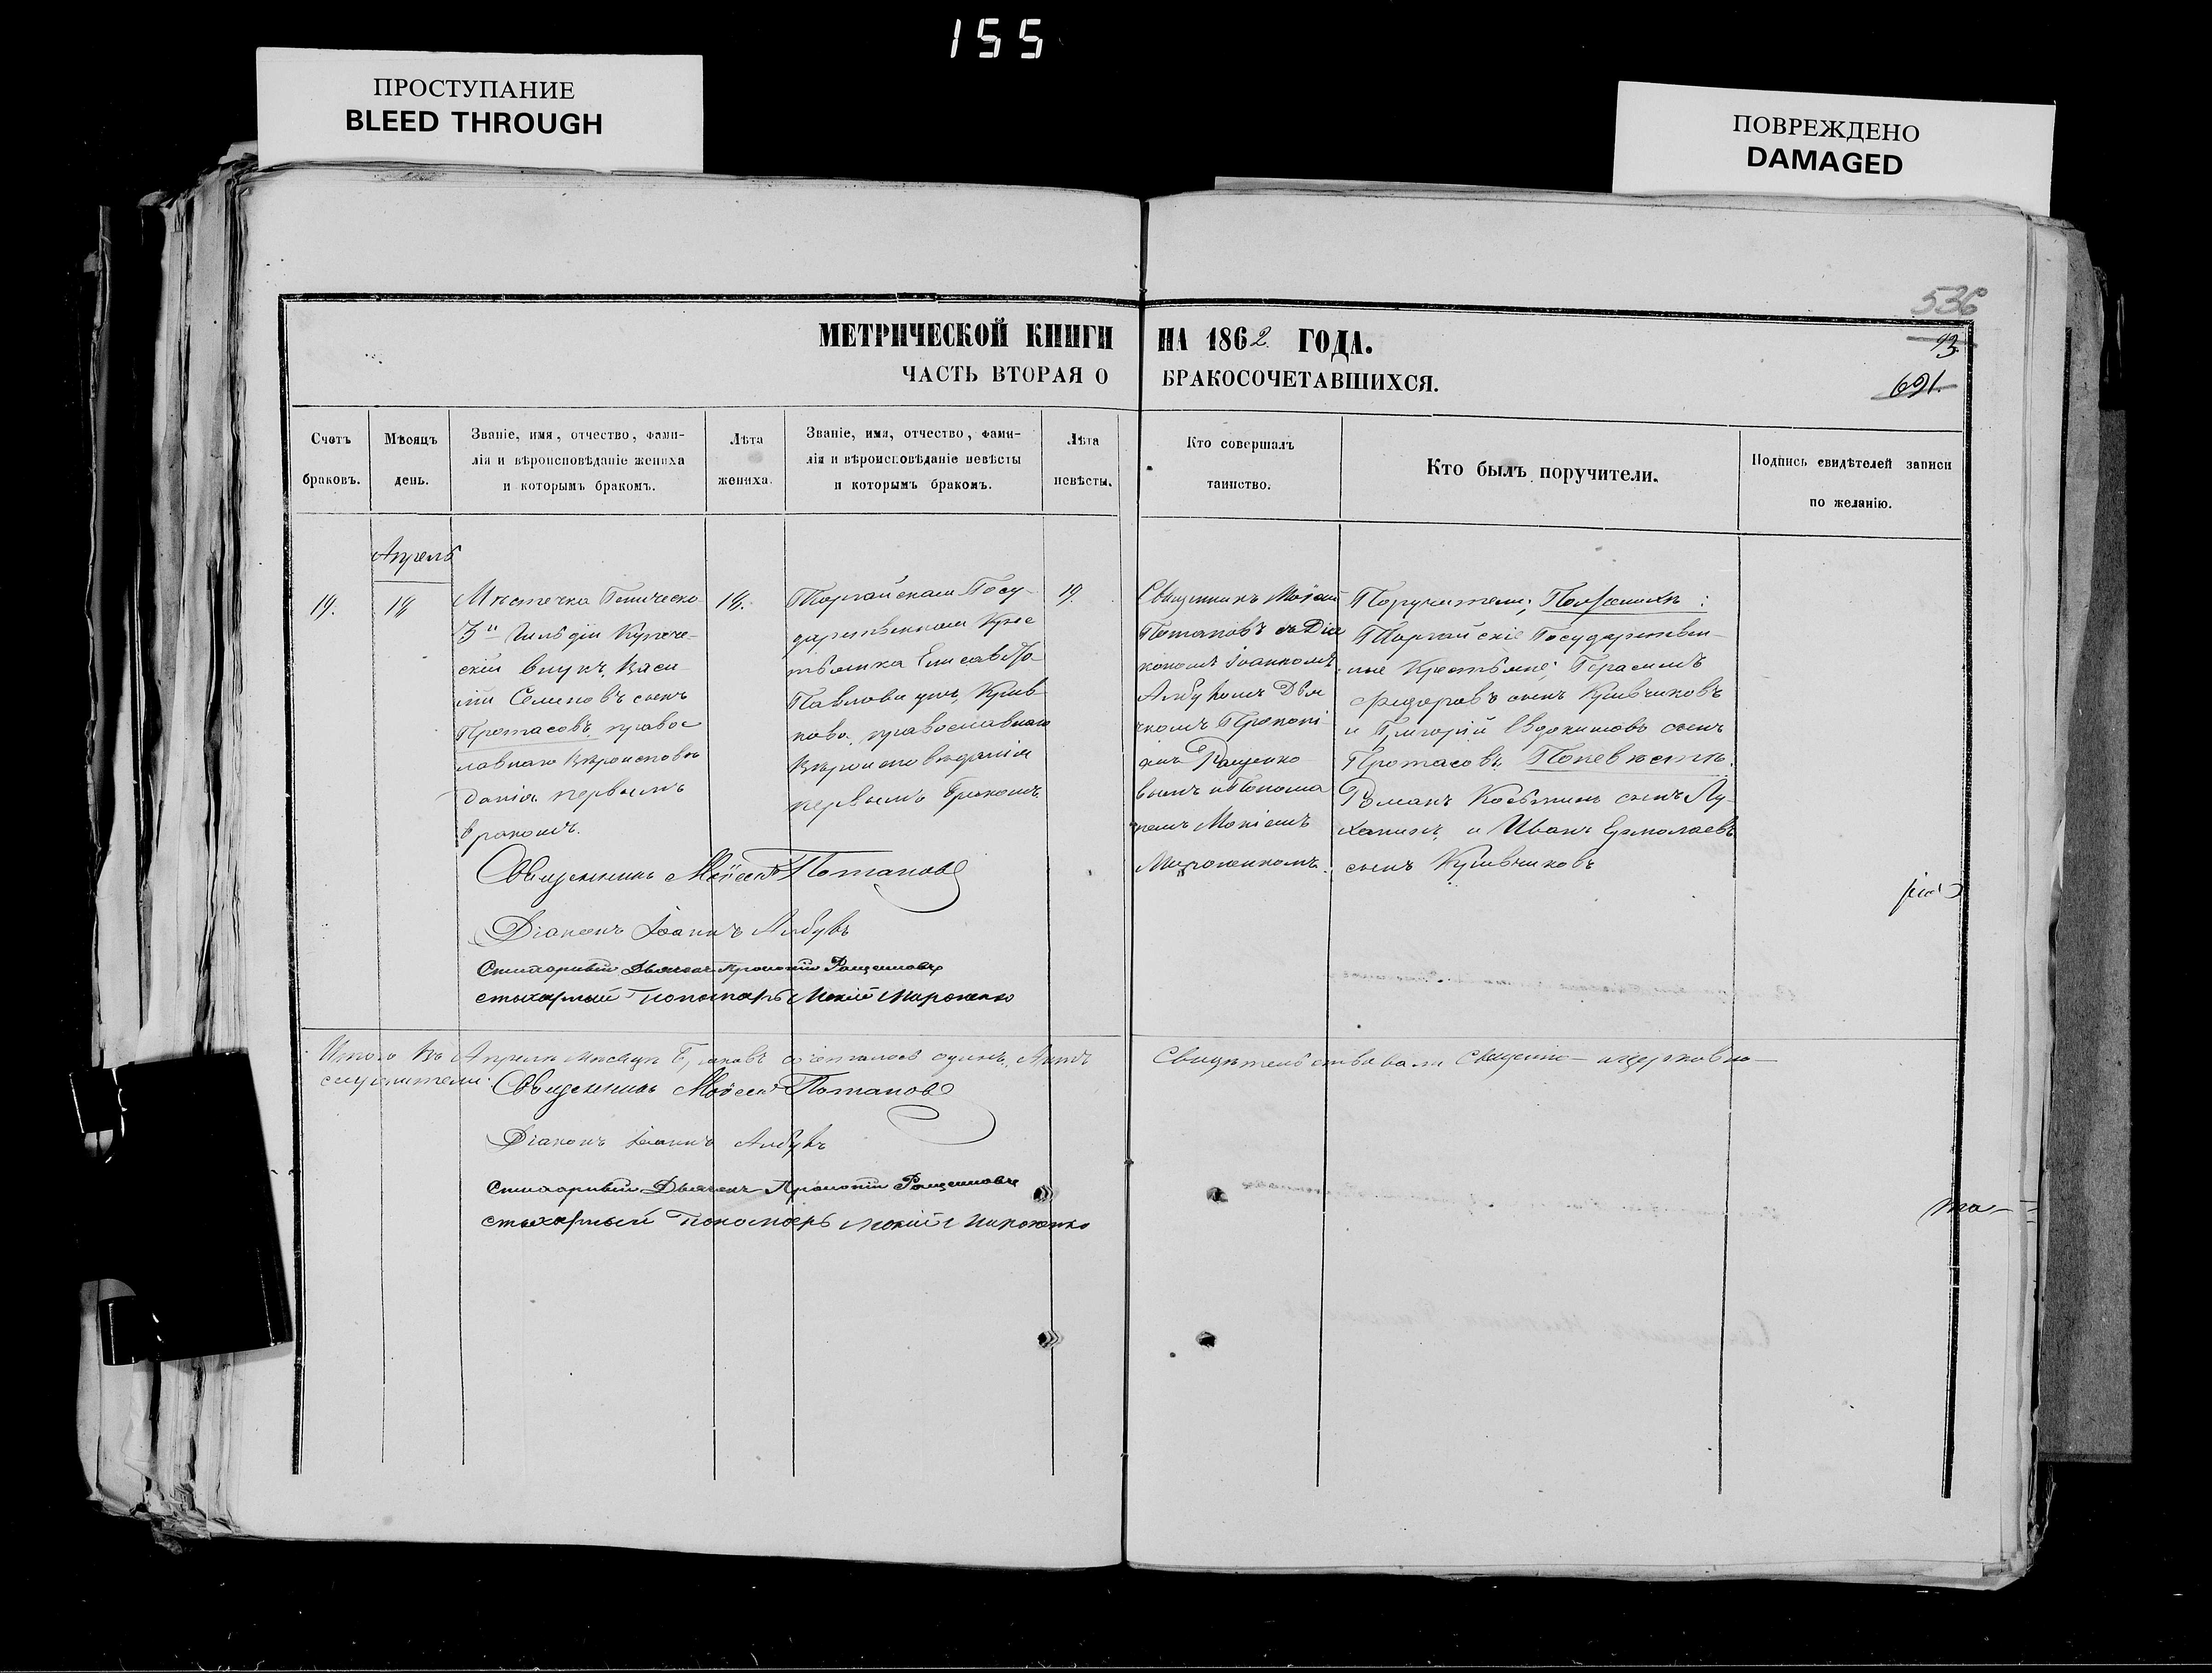 155
ПРОСТУПАНИЕ
BLEED THROUGH
ПОВРЕЖДЕНО
DAMAGED
536
МЕТРИЧЕСКОЙ КНИГИ НА 1862 ГОДА.
13.
ЧАСТЬ ВТОРАЯ О БРАКОСОЧЕТАВШИХСЯ.
691.
Счетъ
браковъ.
Мѣсяцъ
день.
Званіе, имя, отчество, фами-
лія и вѣроисповѣданіе жениха
и которымъ бракомъ.
Лѣта
жениха.
Званіе, имя, отчество, фами-
лія и вѣроисповѣданіе невѣсты
и которымъ бракомъ.
Лѣта
невѣсты.
Кто совершалъ
таинство.
Кто былъ поручители.
Подпись свидѣтелей записи
по желанію.
Апрель
19.
18
Мѣстечка Геническо
3й Гильдіи Купече-
скій внукъ, Васи
лій Семеновъ сынъ
Протасовъ, правос
лавнаго Вѣроисповѣ
данія первымъ
бракомъ.
18.
Торгайская Госу-
дарственная Крес
тьянка Елисавета
Павлова
православнаго
Вѣроисповѣданія
первымъ бракомъ
19.
Священникъ Моисей
Потаповъ съ Діа
кономъ Іоанномъ
Албуломъ Дья
чкомъ Прокопі
емъ Ращенко
вымъ и Понома
ремъ Мокіемъ
Мироненкомъ.
Поручители; По Женихѣ:
Торгайскіе Государствен-
ные Крестьяне; Герасимъ
Федоровъ сынъ Кривчиковъ
и Григорій Евдокимовъ сынъ
Протасовъ. По невѣстѣ.
Романъ Козьминъ сынъ Лу-
и Иванъ Ермолаевъ
сынъ Кривчиковъ
Священникъ Моисей Потаповъ
Діаконъ Іоаннъ
Стихарный Дьячекъ Прокопій Ращенковъ
стихарный Пономарь Мокій Мироненко
Итого въ Апрелѣ мѣсяцѣ Браковъ сочеталось одинъ. Свидѣтельствовали Священно-церковно-
служители:
Священникъ Моисей Потаповъ
Діаконъ Іоаннъ
Стихарный Дьячекъ Прокопій Ращенковъ
стихарный Пономарь Мокій Мироненко